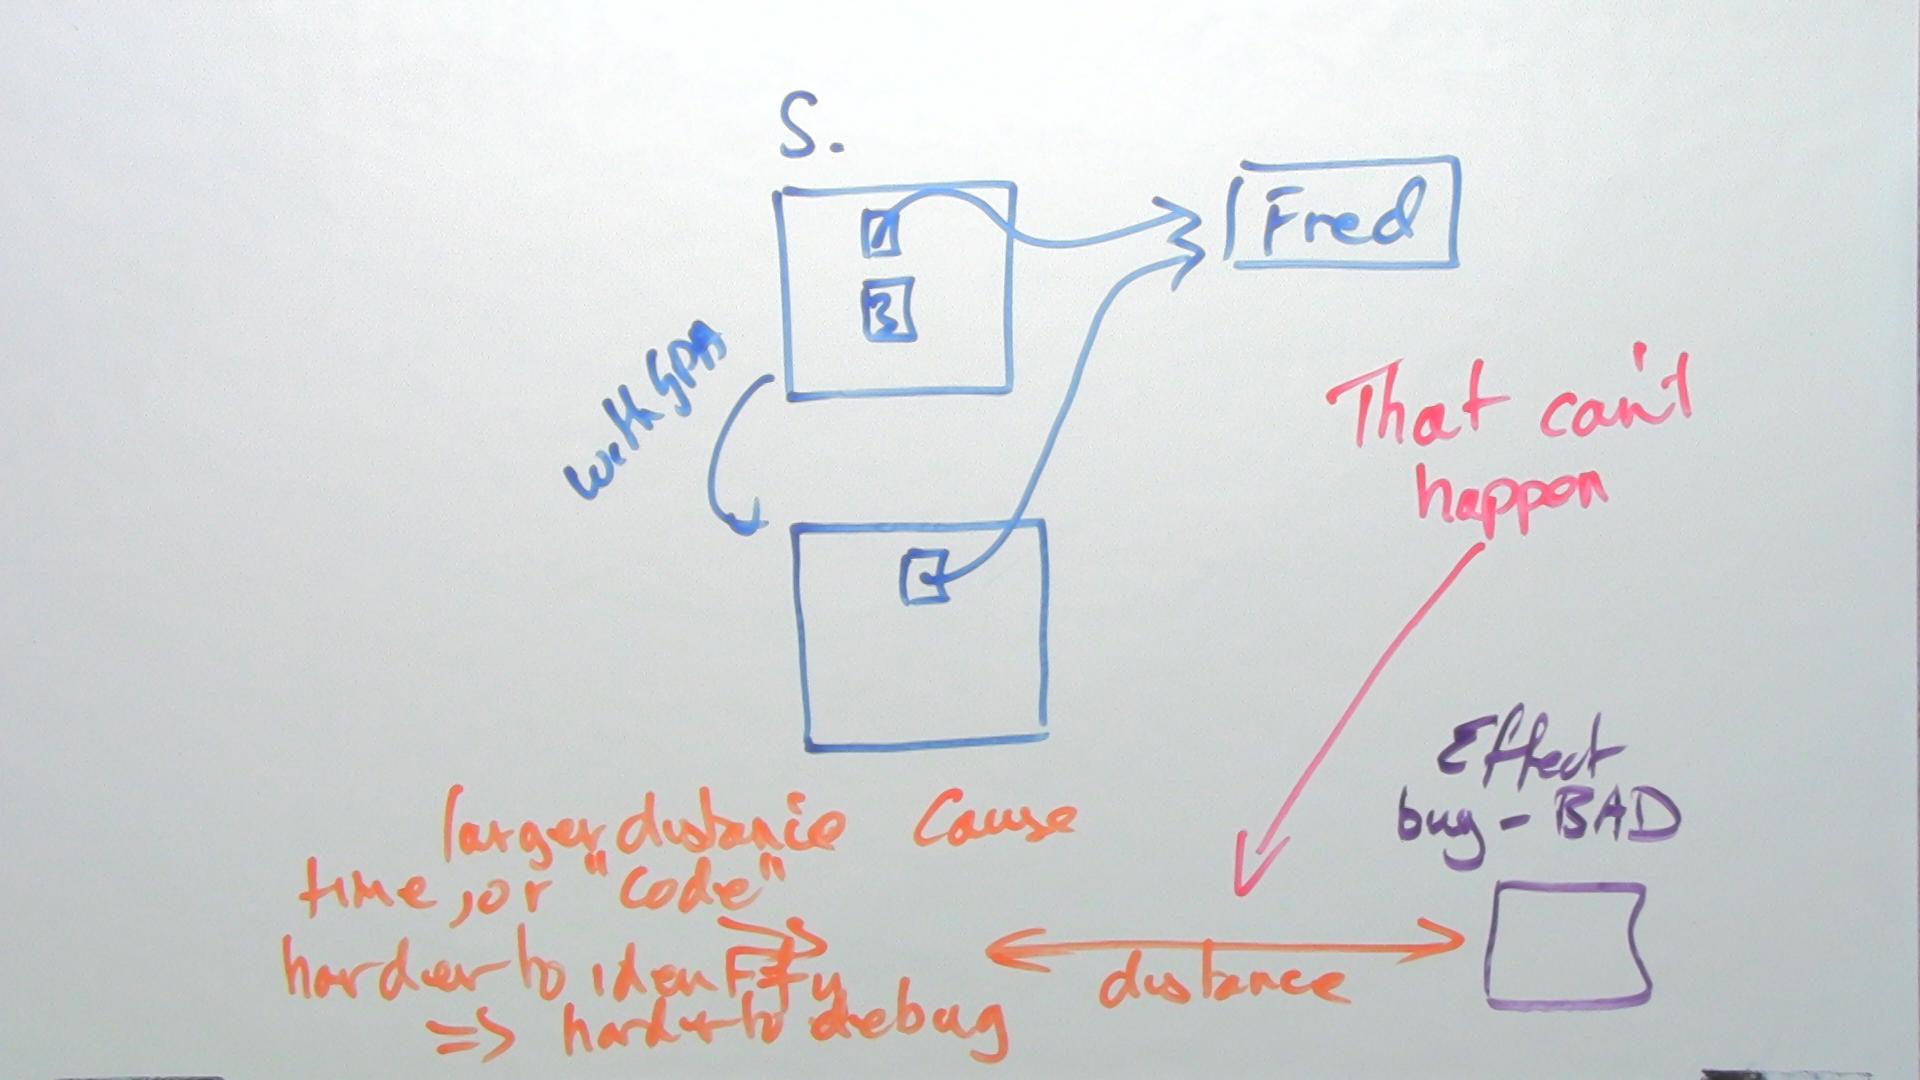 S.
Fred
3
withGPA
That can't
happen
Effect
bug - BAD
larger distance Cause
time, or "code"
harder to identify
=> harder to debug
distance